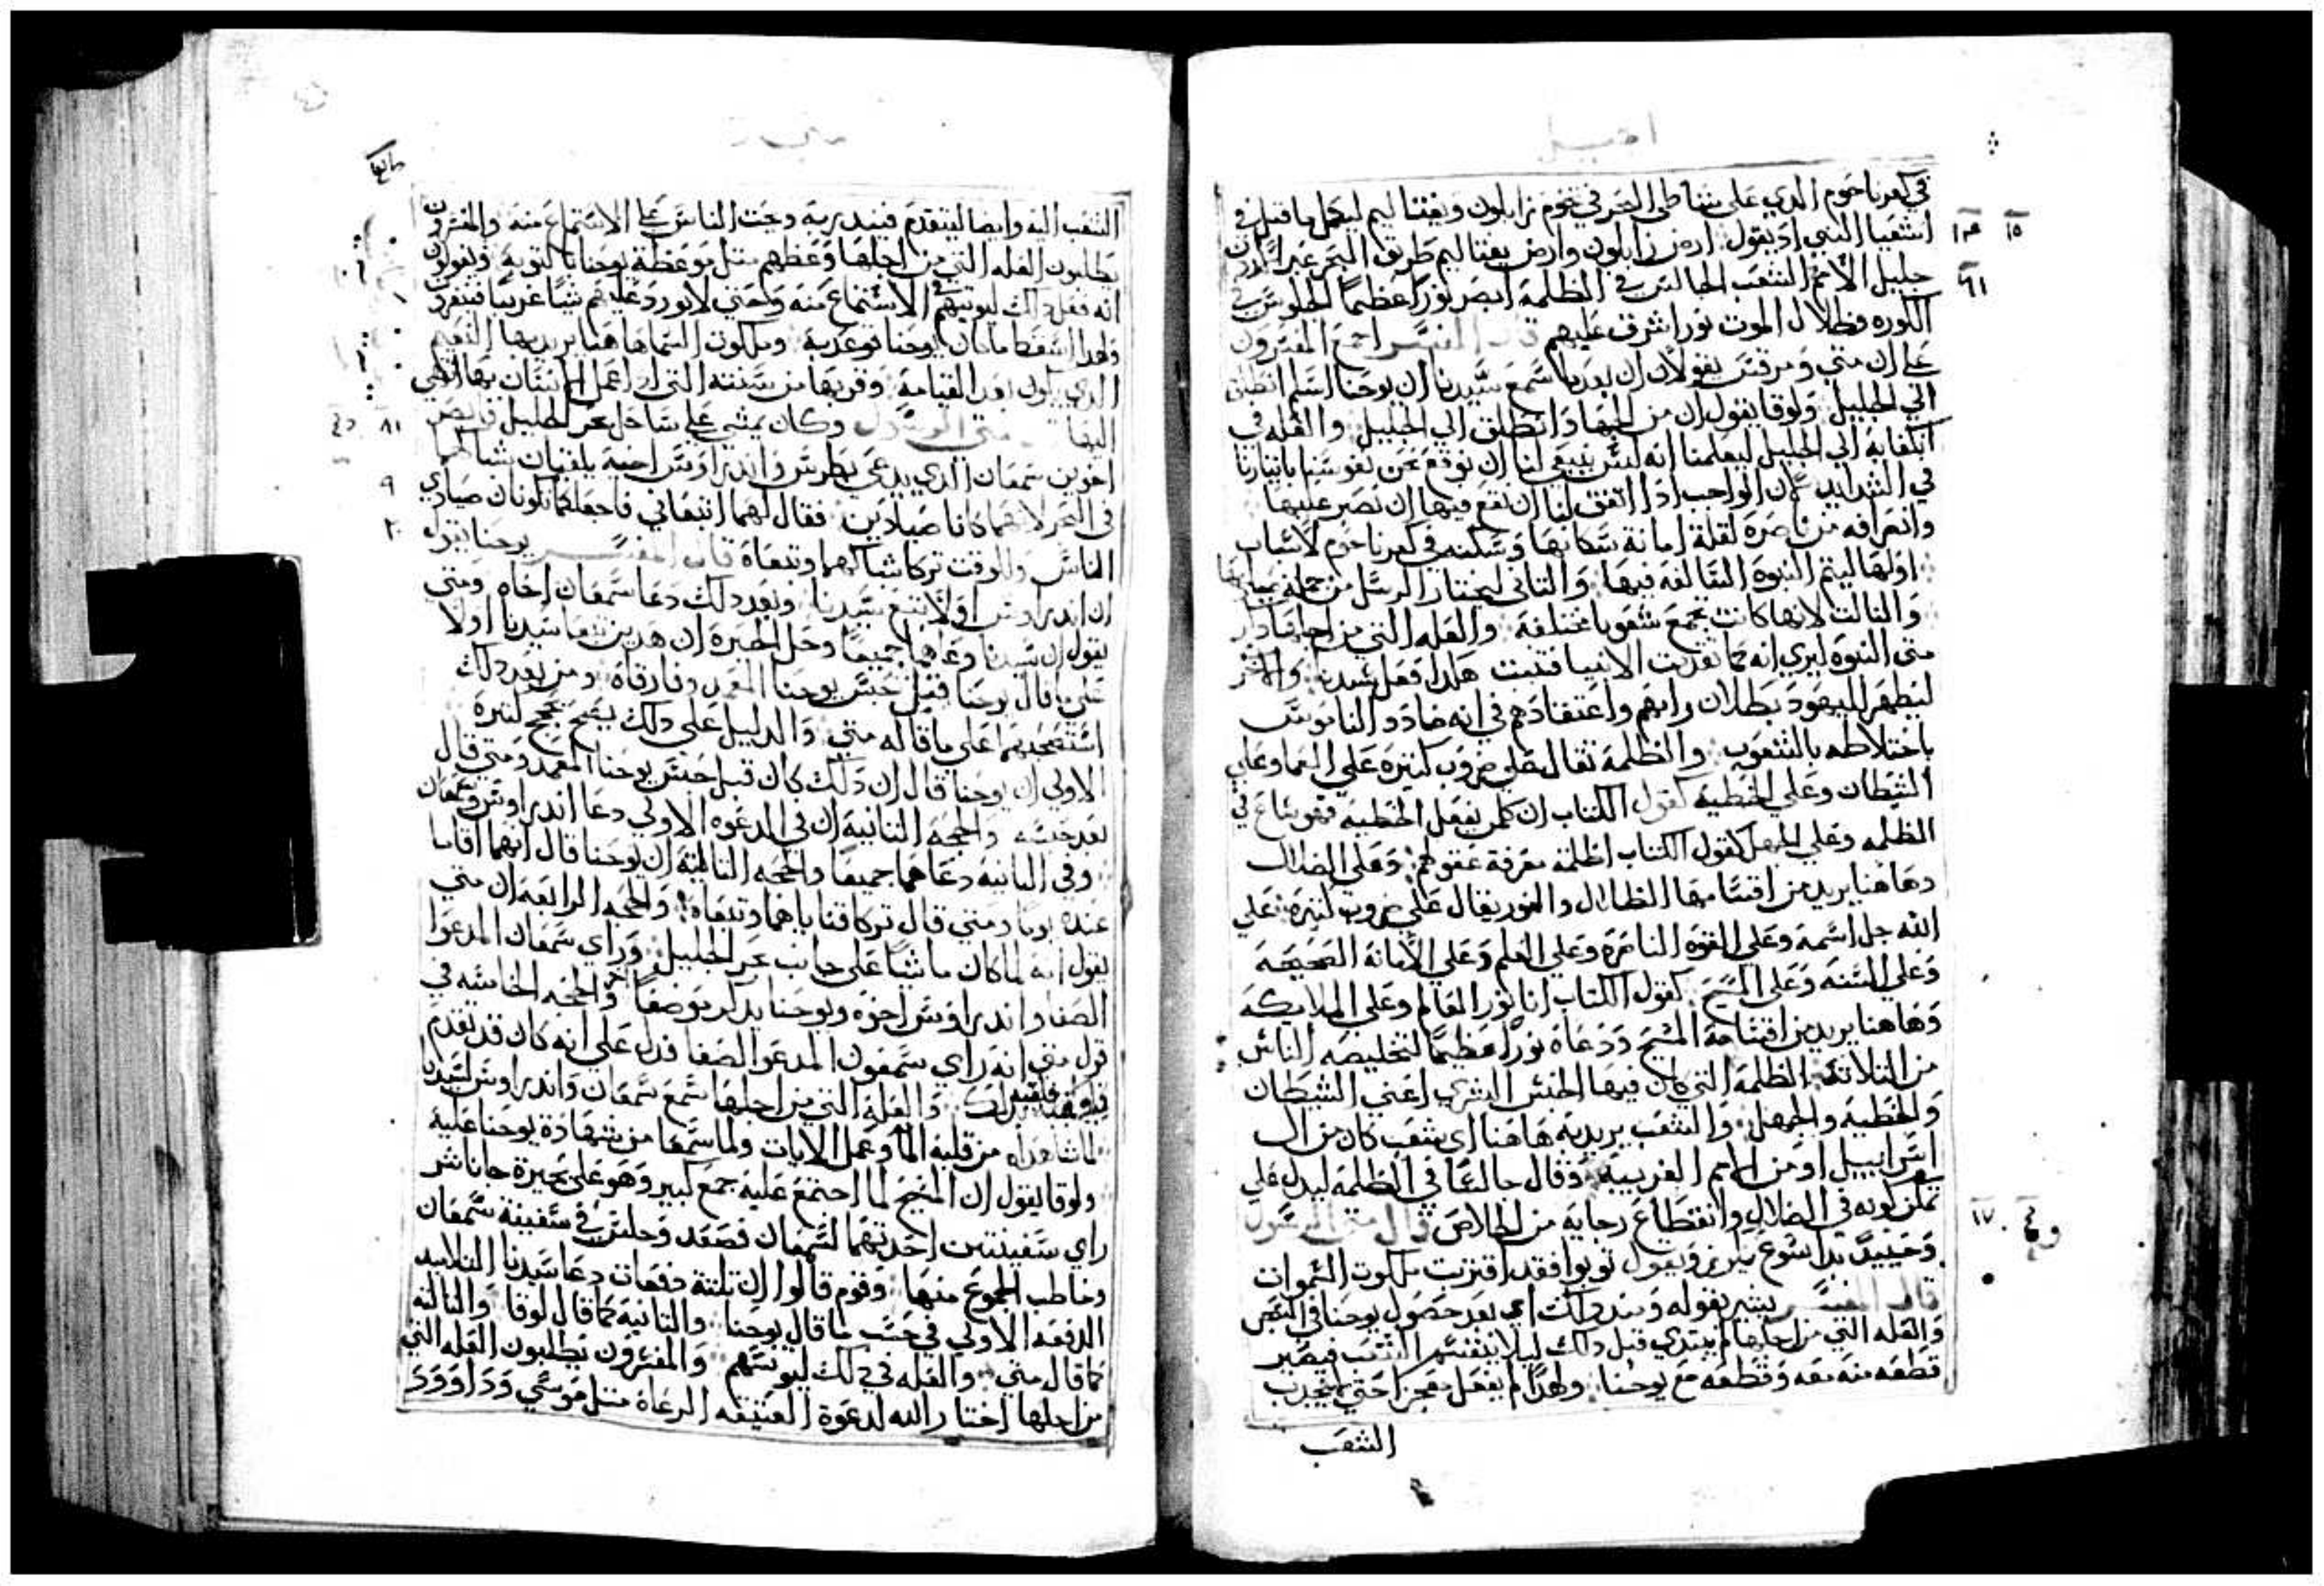 انجيل
في كفرناحوم الدي على شاطى البحر في تخوم زابلون ونفتاليم ليكمل ما قيل في
اشعيا النبي اد يقول ارض زابلون وارض نفتاليم طريق البحر عبر الاردن
جليل الامم الشعب الجالس في الظلمة ابصر نورا عظيما الجلوس في
الكوره وظلال الموت نور اشرق عليهم قال المفسر اجمع المفسرون
على ان متي ومرقس يقولان ان بعدما سمع سيدنا ان يوحنا اسلم انطلق
الي الجليل ولوقا يقول ان من الجهاد انطلق الي الجليل والعله في
انكفايه الي الجليل ليعلمنا انه ليس ينبغي لنا ان نوقع نحن نفوسنا باختيارنا
في الشدايد لان الواجب ادا اتفق لنا ان نقع فيها ان نصبر عليها
وانصرافه من ناصرة لقلة امانة سكانها وسكنه في كفرناحوم لاسباب
اولها ليتم النبوة السالفه فيها والتاني ليختار الرسل من جملة صياديها
والتالت لانها كانت تجمع شعوبا مختلفة والعله التي من اجلها دكر
متى النبوة ليري انه كما تقدمت الانبيا فتنبت هكدا فعل سيدنا والاخر
ليظهر لليهود بطلان رايهم واعتقادهم في انه ضادد الناموس
باختلاطه بالشعوب والظلمة تقال على ضروب كتيرة على العما وعلي
الشيطان وعلي الخطية كقول الكتاب ان كلمن يفعل الخطيه فهو ساع في
الظلمه وعلي الجهل كقول الكتاب اظلمة معرفة عقولهم وعلي الضلال
وهاهنا يريد من اقسامها الضلال والنور يقال على ضروب كتيرة على
الله جل اسمه وعلي القوه الناصرة وعلي العلم وعلي الامانة الصحيحة
وعلي السنه وعلى المسيح كقول الكتاب انا نور العالم وعلي الملايكة
وهاهنا يريد من اقسامه المسيح ودعاه نورا عظيما لتخليصه الناس
من التلاتة الظلمة التي كان فيها الجنس البشري اعني الشيطان
والخطية والجهل والشعب يريد به هاهنا اي شعب كان من ال
اسراييل او من الامم الغريبة وقال جالسا في الظلمة ليدل علي
تمكن كونه في الضلال وانقطاع رجايه من الخلاص قال متي الرسول
وحينيد بدا يسوع يكرز ويقول توبوا فقد اقتربت ملكوت السموات
قال المفسر يشير بقوله ومند دلك اي بعد حصول يوحنا في السجن
والعله التي من اجلها لم يبتدي قبل دلك ليلا ينقسم الشعب فيصير
قطعه منه معه وقطعه مع يوحنا ولهدا لم يفعل معجزا حتي ينجدب
الشعب
١٥
١٦
١٧
متي
الشعب اليه وايضا ليتقدم فيندر به وحت الناس على الاستماع منه والمفسرون
يطلبون العله التي من اجلها وعظهم متل موعظة يوحنا بالتوبة ويقولون
انه فعل دلك ليونسهم في الاستماع منه وحتي لا يورد عليهم شيا غريبا فينفرون
الدي يكون بعد القيامة وقربها من سنته التي ادا عمل الانسان بها انتهي
اليها متي الرسول وكان يمشي على ساحل بحر الجليل فابصر
اخوين سمعان الدي يدعى بطرس واندراوس اخيه يلقيان شباكهما
في البحر لانهما كانا صيادين فقال لهما اتبعاني فاجعلكما تكونان صيادي
الناس وللوقت تركا شباكهما وتبعاه قال المفسر يوحنا يقول
ان اندراوس اولا تبع سيدنا وبعد دلك دعا سمعان اخاه ومتي
يقول ان سيدنا دعاهما جميعا وحل الحيرة ان هدين تبعا سيدنا اولا
على ما قال يوحنا قبل حبس يوحنا المعمدان وفارقاه ومن بعد دلك
استصحبهما على ما قاله متي والدليل على دلك يصح بحجج كتيرة
الاولي ان يوحنا قال ان دلك كان قبل حبس يوحنا المعمد ومتي قال
بعد حبسه والحجه التانية ان في الدعوه الاولي دعا اندراوس سمعان
وفي التانيه دعاهما جميعا والحجه التالتة ان يوحنا قال انهما اقاما
عنده يوما ومتي قال تركا قناياهما وتبعاه والحجه الرابعه ان متي
يقول انه لما كان ماشيا على جانب بحر الجليل وراي سمعان المدعوا
الصفا واندراوس اخوه ويوحنا لم يدكر موضعا والحجه الخامسه في
قول متي انه راي سمعون المدعو الصفا فدل على انه كان قد تقدم
والعلة التي من اجلها سمع سمعان واندراوس لسيدنا
لما شاهداه من قلبه الما وعمل الايات ولما سمعا من شهادة يوحنا عليه
ولوقا يقول ان المسيح لما اجتمع عليه جمع كبير وهو على بحيرة جاناشر
راي سفينتين احديهما لسمعان فصعد وجلس في سفينة سمعان
وخاطب الجموع منها وقوم قالوا ان تلتة دفعات دعا سيدنا التلاميد
الدفعه الاولي في حسب ما قال يوحنا والتانية كما قال لوقا والتالته
كما قال متي والعله في دلك ليونسهم والمفسرون يطلبون العله التي
من اجلها اختار الله لدعوة العتيقه الرعاة متل موسي وداوود
١٨